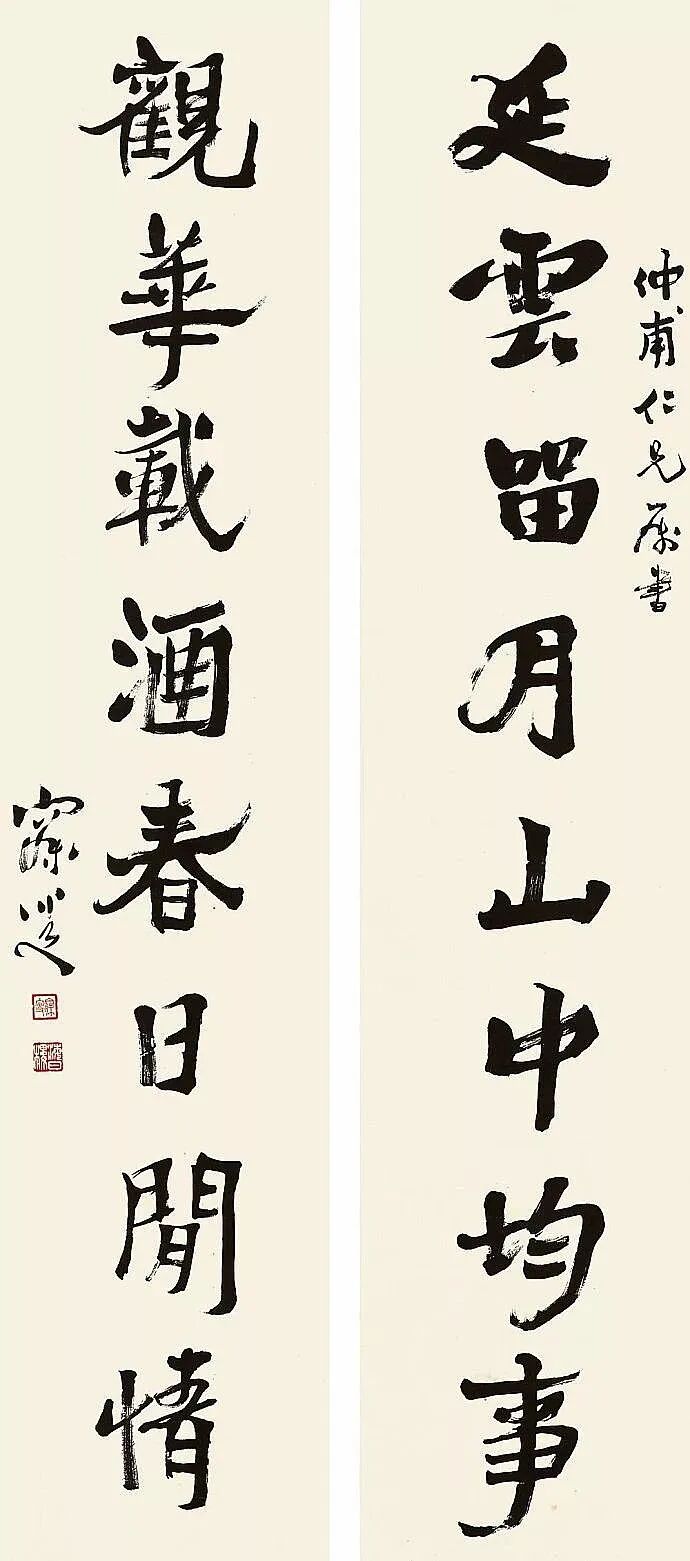 仲甫仁兄属書
延雲畱月山中均事
觀華載酒春日閒情
寐叟